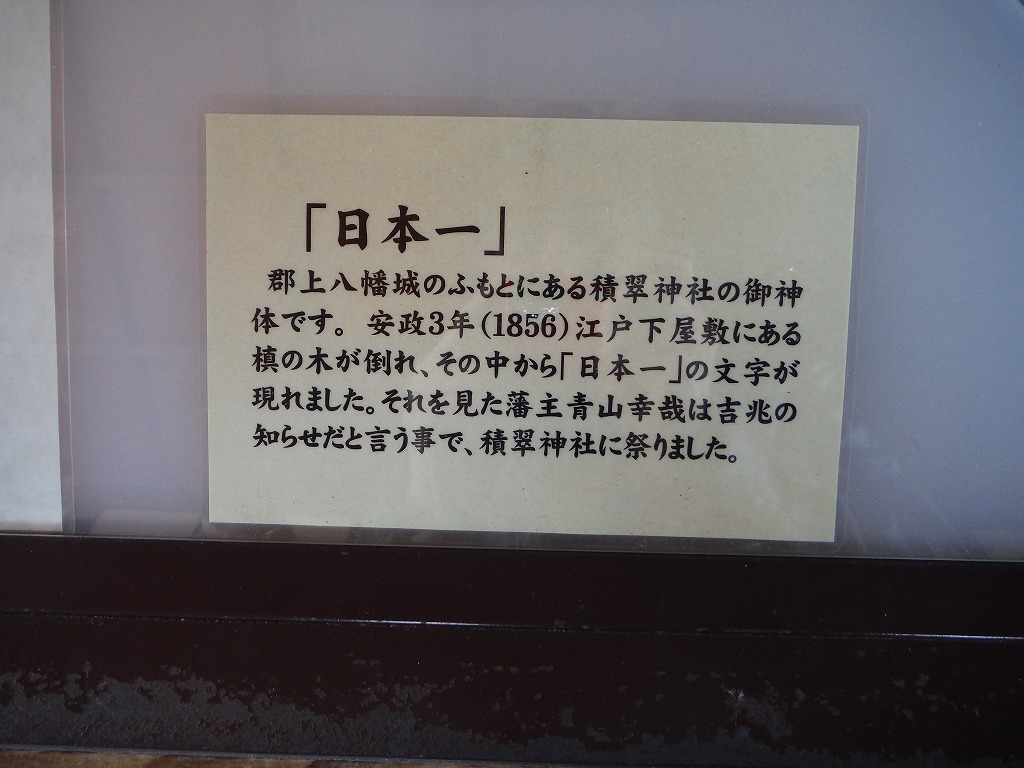 「日本一」
郡上八幡城のふもとにある積翠神社の御神
体です。安政3年(1856)江戸下屋敷にある
槙の木が倒れ、その中から「日本一」の文字が
現れました。それを見た藩主青山幸哉は吉兆の
知らせだと言う事で、積翠神社に祭りました。